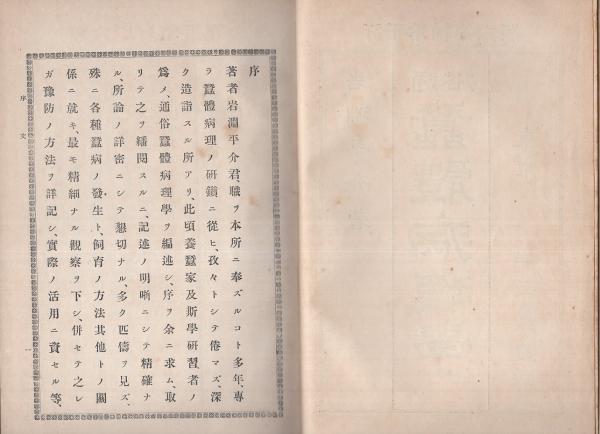 序
著者岩淵平介君、職ヲ本所ニ奉ズルコト多年、專
ラ蠶體病理ノ研鑽ニ從ヒ、孜々トシテ倦マズ、深
ク造詣スル所アリ、此頃養蠶家及斯學研習者ノ
爲メ、通俗蠶體病理學ヲ編述シ、序ヲ余ニ求ム、取
リテ之ヲ繙閱スルニ、記述ノ明晰ニシテ精確ナ
ル、所論ノ詳密ニシテ懇切ナル、多ク匹儔ヲ見ズ、
殊ニ各種蠶病ノ發生ト、飼育ノ方法其他トノ關
係ニ就キ、最モ精細ナル觀察ヲ下シ、併セテ之レ
ガ豫防ノ方法ヲ詳記シ、實際ノ活用ニ資セル等、
序文
一